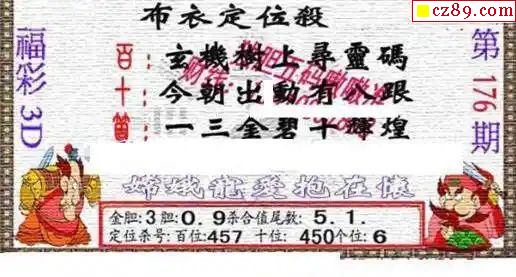 cz89.com
布衣定位殺
福彩3D
第176期
百：玄機樹上尋靈碼
十：今朝出動有八跟
個：一三金碧十輝煌
嫦娥龍愛抱在懷
金胆：3胆：0.9杀合值尾数：5.1.
定位杀号：百位：457 十位：450个位：6